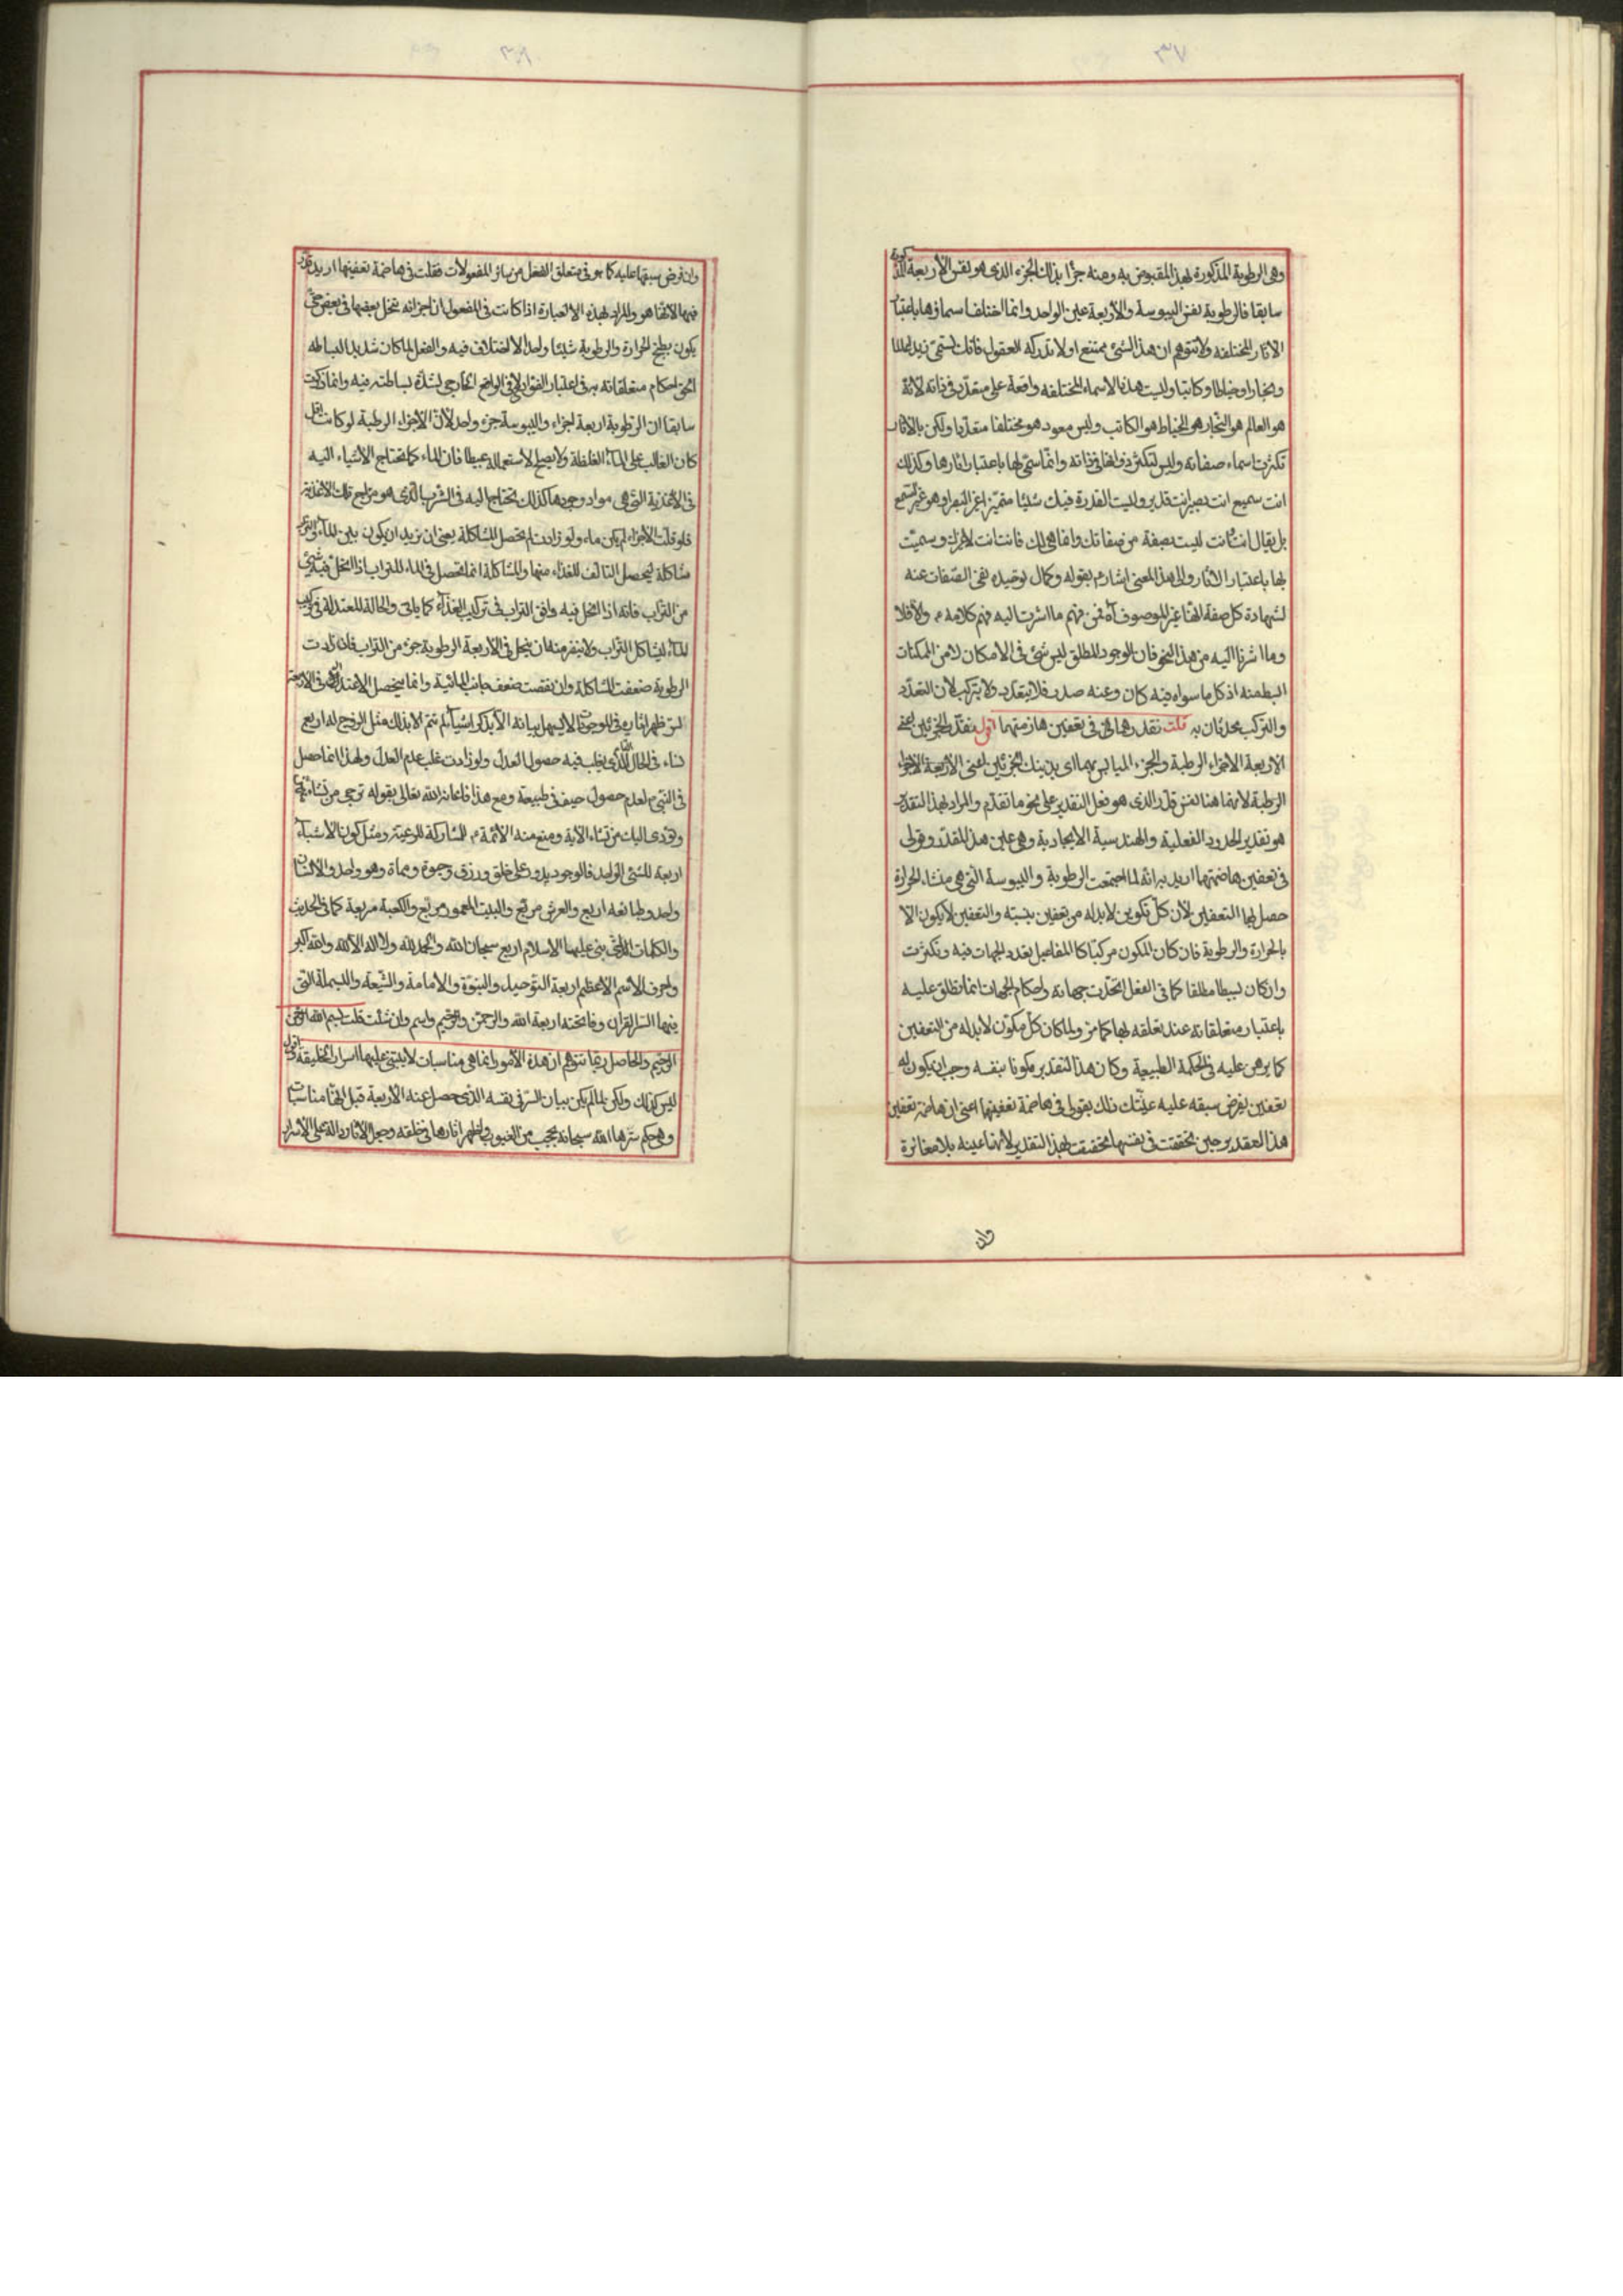 وهى الرطوبة المذكورة لهذا المقبوض به ومنه جزءا بذلك الجزء الذى هو نفس الأربعة المذكورة
سابقا فالرطوبة نفس اليبوسة والأربعة عين الواحد وانما اختلفا سماؤها باعتبار
الاثار المختلفة ولا تتوهم ان هذا الشئ ممتنع او لا تدركه العقول فانك تسمى زيد اعالما
ونجارا وخياطا وكاتبا وليست هذه الاسماء المختلفه واقعة على متعدد فى ذاته لانه
هو العالم هو النجار هو الخياط هو الكاتب وليس معود هو مختلفا متعددا ولكن بالاثار
تكثرت اسماء صفاته وليس لتكثر ذو لها فى ذاته وانما سمى بها باعتبار اثارها وكذلك
انت سميع انت بصير انت قدير وليست القدرة فيك شيئا متميزا غير البصر او هو غير السمع
بل يقال انت انت ليست بصفة من صفاتك وانما هى لك فانت انت لا غيرك وسميت
بها باعتبار الاثار والى هذا المعنى اشار م بقوله وكمال توحيده نفى الصفات عنه
لشهادة كل صفة انها غير الموصوف آه فمن فهم ما اشرت اليه فهم كلامه م والا فلا
وما اشرنا اليه من هذا النحو فان الوجود المطلق ليس شئ فى الامكان لا من الممكنات
ابسط منه اذ كل ما سواه فيه كان وعنه صدر فلا يتعدد ولا يتركب لأن التعدد
والتركب محدثان به قلت نقدرهما فى تعفين هاضمتهما اقول نقدر الجزئين اعنى
الاربعة الاجزاء الرطبة والجزء اليابس بهما اى بذينك الجزئين اعنى الأربعة الاجزاء
الرطبة لأنهما هنا نفس قدر الذى هو فعل التقدير على نحو ما تقدم والمراد بهذا التقدير
هو تقدير الحدود الفعلية والهندسية الايجادية وهى عين هذا المقدر وقولى
فى تعفين هاضمتهما اريد به انه لما اجتمعت الرطوبة واليبوسة التى هى منشاء الحرارة
حصل لهما التعفين لأن كل تكوين لا بد له من تعفين بنسبته والتعفين لا يكون الا
بالحرارة والرطوبة فان كان المكون مركبا كالمفاعيل تعدد الجهات فيه وتكثرت
وان كان بسيطا مطلقا كما فى الفعل اتحدت جهاته واحكام الجهات انما تطلق عليه
باعتبار متعلقاته عند تعلقه بها كما مر ولما كان كل مكون لا بد له من التعفين
كما برهن عليه فى الحكمة الطبيعية وكان هذا التقدير مكونا بنفسه وجب ان يكون له
تعفين بفرض سبقه عليه عنيت ذلك بقولى فى هاضمة تعفينهما اعنى ان هاضمة تعفين
هذا التقدير حين تحققت فى نفسها تحققت بهذا التقدير لأنها عينه بلا مغايرة
وان
وان فرض سبقها عليه كما هو فى متعلق الفعل من سائر المفعولات فقلت فى هاضمة تعفينهما اريد
فيها الا انها هو والمراد بهذه الا العبارة اذا كانت فى المفعول ان اجزائه تنحل بعضها فى بعض حتى
يكون بطبخ الحرارة والرطوبة شيئا واحدا لا اختلاف فيه والفعل لما كان شديد البساطه
اتحق احكام متعلقاته به فى اعتبار الفؤاد لا فى الواقع الخارجى لشدة بساطته فيه وانما ذكرت
سابقا ان الرطوبة اربعة اجزاء واليبوسة جزء واحد لأن الأجزاء الرطبة لو كانت اقل
كان الغالب على الماء الغلظة ولا يصلح لاستعماله عبيطا فان الماء كما تحتاج الأشياء اليه
فى الاغذية التى هى مواد وجودها كذلك تحتاج اليه فى الشرب الذى هو مزاج تلك الاغذية
فلو قلت الأجزاء لم يكن ماء ولو زادت لم تحصل المشاكلة يعنى ان نريد ان يكون بين الماء والتراب
مشاكلة ليحصل التالف للغذاء منهما والمشاكلة انما تحصل فى الماء للتراب اذا انحل فيه شئ
من التراب فانه اذا انحل فيه وافق التراب فى تركيب الغذاء كما ياتى والحالة المعتدلة فى تركيب
الماء ليشاكل التراب ولا ينفر منه ان ينحل فى الأربعة الرطوبة جزء من التراب فان زادت
الرطوبة ضعفت المشاكلة وان نقصت ضعف جانب المائية وانما يحصل الاعتدال فى الاربعة
لسر ظهر اثاره فى الموجودات لا يسهل بيانه الا بذكر اشياء لم تتم الا بذلك مثل الزوج له اربع
نساء فى الحال الذى يغلب فيه حصول العدل ولو زادت غلب عدم العدل ولهذا انما حصل
فى النبى ص لعدم حصول حيف فى طبيعة ومع هذا فاعانه الله تعالى بقوله ترجى من تشاء منهن
وتؤوى اليك من تشاء الآية ومنع منه الأئمة م المشاركة للرعية ومثل كون الأشياء
اربعة للشئ الواحد فالوجود يدور على خلق ورزق وحيوة وممات وهو واحد والانسان
واحد وطبائعه اربع والعرش مربع والبيت المعمور مربع والكعبة مربعة كما فى الحديث
والكلمات التى بنى عليها الاسلام اربع سبحان الله والحمد لله ولا اله الا الله والله اكبر
واحرف الاسم الاعظم اربعة التوحيد والنبوة والامامة والشيعة والبسملة التى
فيها السر القران وفاتحته اربعة الله والرحمن والرحيم واسم وان شئت قلت بسم الله الرحمن
الرحيم والحاصل ربما تتوهم ان هذه الأمور انما هى مناسبات لا يبتنى عليها اسرار الخليقة
ليس كذلك ولكن لما لم يكن بيان السر فى نفسه الذى حصل عنه الأربعة قبل انها مناسبات
وهى حكم سترها الله سبحانه بحجب من الغيوب واظهر اثارها فى خلقه وجعل الاثار دالة على الأسرار